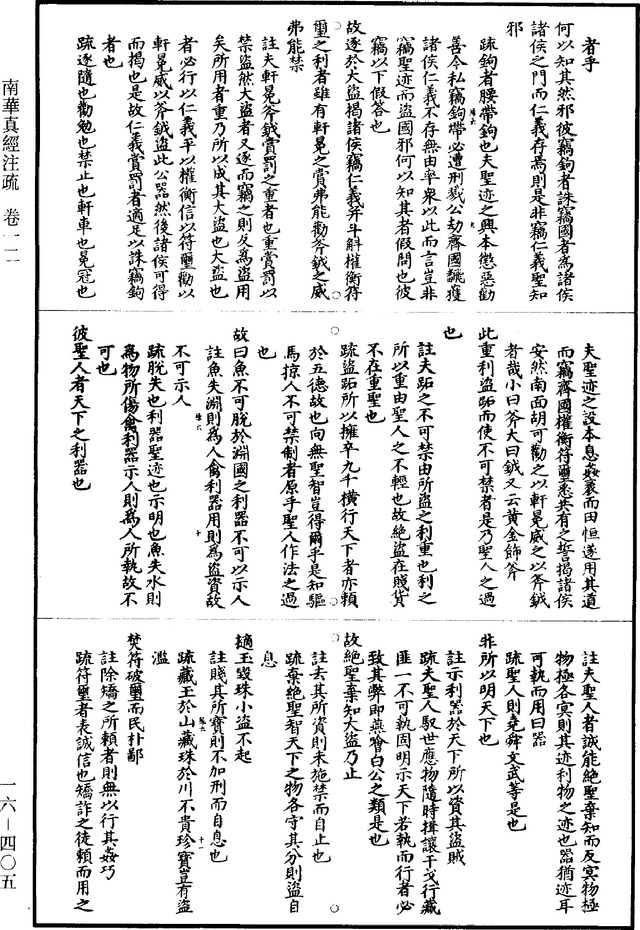 者乎
何以知其然邪彼竊鉤者誅竊國者為諸侯
諸侯之門而仁義存焉則是非竊仁義聖知
邪
疏鉤者腰帶鉤也夫聖迹之興本懲惡勸
善今私竊鉤帶必遭刑戮公劫齊國飜獲
諸侯仁義不存無由率眾以此而言豈非
竊聖迹而盜國邪何以知其者假問也彼
竊以下假答也
故逐於大盜揭諸侯竊仁義并斗斛權衡符
璽之利者雖有軒冕之賞弗能勸斧鉞之威
弗能禁
註夫軒冕斧鉞賞罰之重者也重賞罰以
禁盜然大盜者又逐而竊之則反為盜用
矣所用者重乃所以成其大盜也大盜也
者必行以仁義平以權衡信以符璽勸以
軒冕威以斧鉞盜此公器然後諸侯可得
而揭也是故仁義賞罰者適足以誅竊鉤
者也
疏逐隨也勸勉也禁止也軒車也冕冠也
夫聖迹之設本息姦衺而田恒遂用其道
而竊齊國權衡符璽悉共有之誓揭諸侯
安然南面胡可勸之以軒冕威之以斧鉞
者哉小曰斧大曰鉞又云黃金飾斧
此重利盜跖而使不可禁者是乃聖人之過
也
註夫跖之不可禁由所盜之利重也利之
所以重由聖人之不輕也故絕盜在賤貨
不在重聖也
疏盜跖所以擁卒九千橫行天下者亦賴
於五德故也向無聖智豈得爾乎是知驅
馬掠人不可禁制者原乎聖人作法之過
也
故曰魚不可脫於淵國之利器不可以示人
註魚失淵則為人禽利器用則為盜資故
不可示人
疏脫失也利器聖迹也示明也魚失水則
為物所傷禽利器示人則為人所執故不
可也
彼聖人者天下之利器也
註夫聖人者誠能絕聖棄知而反冥物極
物極各冥則其迹利物之迹也器猶迹耳
可執而用曰器
疏聖人則堯舜文武等是也
非所以明天下也
註示利器於天下所以資其盜賊
疏夫聖人馭世應物隨時揖讓干戈行藏
匪一不可執固明示天下若執而行者必
致其弊即燕噲白公之類是也
故絕聖棄知大盜乃止
註去其所資則未施禁而自止也
疏棄絕聖智天下之物各守其分則盜自
息
擿玉毀珠小盜不起
註賤其所寶則不加刑而自息也
疏藏玉於山藏珠於川不貴珍寶豈有盜
濫
焚符破璽而民朴鄙
註除矯之所賴者則無以行其姦巧
疏符璽者表誠信也矯詐之徒賴而用之
南華真經注疏 卷一一
一六－四〇五